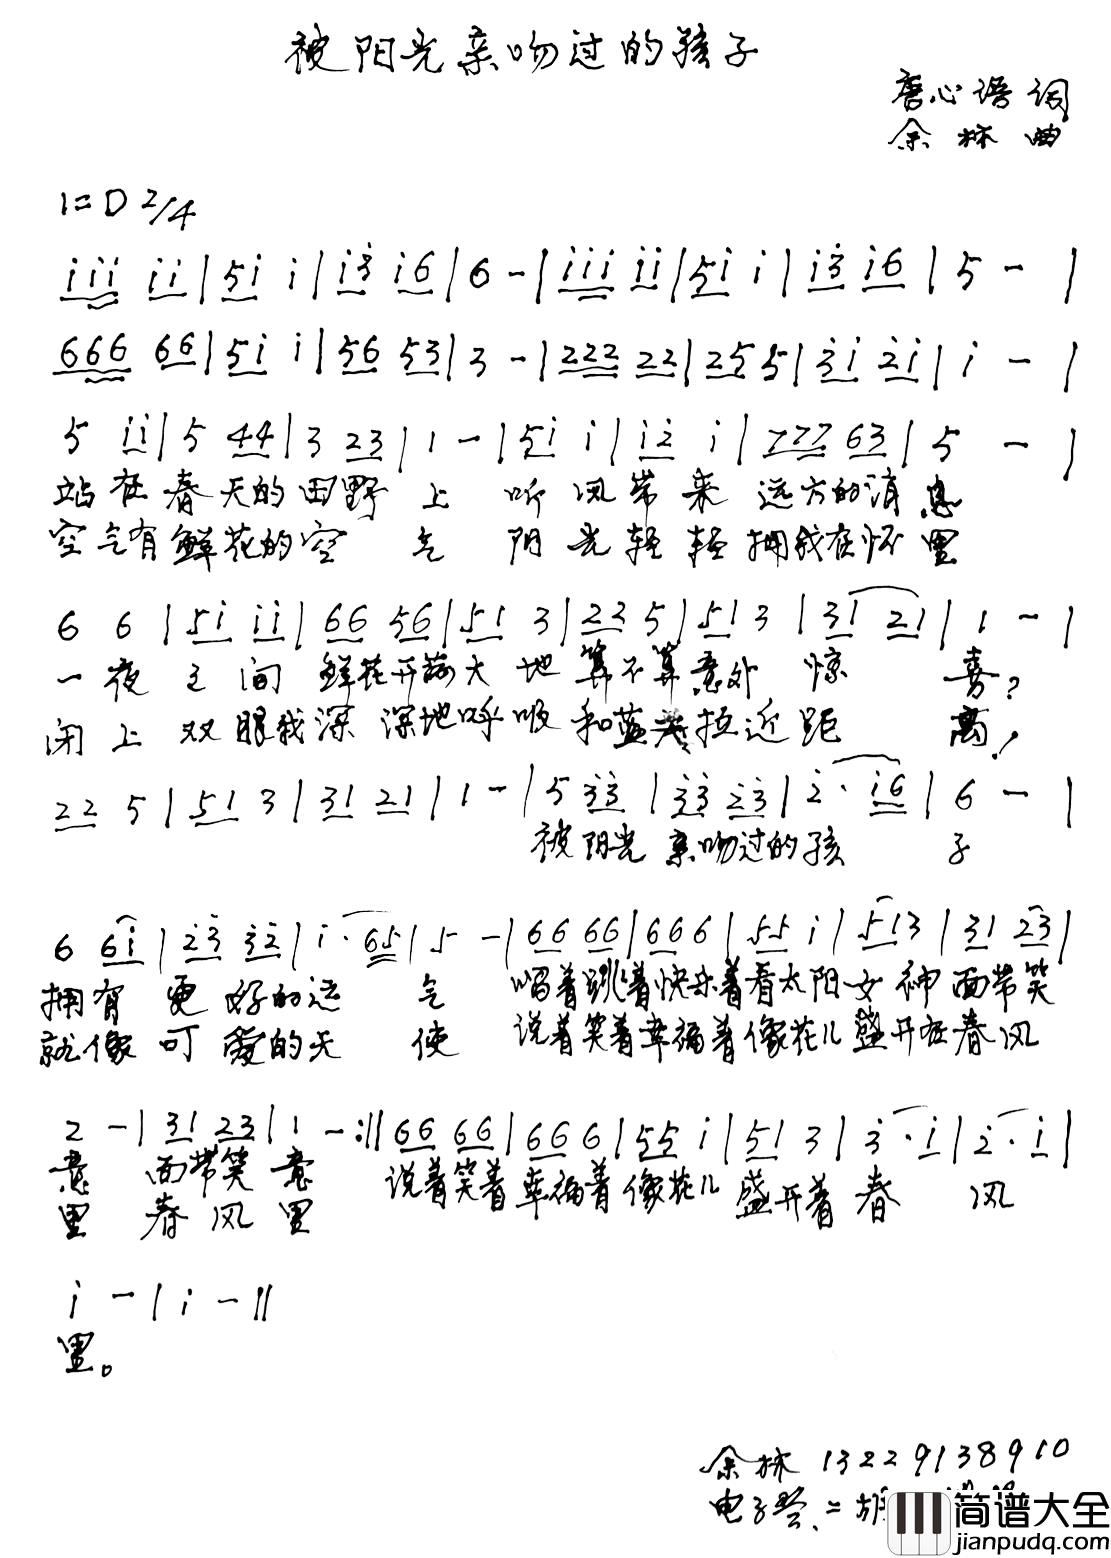 被阳光亲吻过的孩子
唐心语 词
余林 曲
1=D 2/4
i i i i i | 5 i i | i 3 i 6 | 6 - | i i i i i | 5 i i | i 3 i 6 | 5 - |
6 6 6 6 6 | 5 i i | 5 6 5 3 | 3 - | 2 2 2 2 2 | 2 5 5 | 2 i 2 i | i - |
5 i i | 5 4 4 | 3 2 3 | 1 - | 5 i i | i 2 i | 7 7 7 6 3 | 5 - |
站在春天的田野上 听风带来远方的消息
空气有鲜花的空气 阳光轻轻拥我在怀里
6 6 | 5 i i i | 6 6 5 6 | 5 1 3 | 2 2 5 | 5 1 3 | 3 1 2 1 | 1 - |
一夜之间 鲜花开满大地 算不算意外惊喜?
闭上双眼我深深地呼吸 和蓝天拉近距离!
2 2 5 | 5 1 3 | 3 1 2 1 | 1 - | 5 3 3 | 3 3 2 3 | 2 · i 6 | 6 - |
被阳光亲吻过的孩子
6 6 i | 2 3 3 2 | i · 6 5 | 5 - | 6 6 6 6 | 6 6 6 | 5 5 i | 5 1 3 | 3 1 2 3 |
拥有更好的运气 唱着跳着快乐着看太阳女神面带笑
就像可爱的天使 说着笑着幸福着像花儿盛开在春风
2 - | 3 1 2 3 | 1 - :|| 6 6 6 6 | 6 6 6 | 5 5 i | 5 1 3 | 3 · i | 2 · i |
意 面带笑意 说着笑着幸福着像花儿盛开着春风
里 春风里
i - | i - ||
里。
余林 13229138910
电子
简谱大全
jianpudq.com